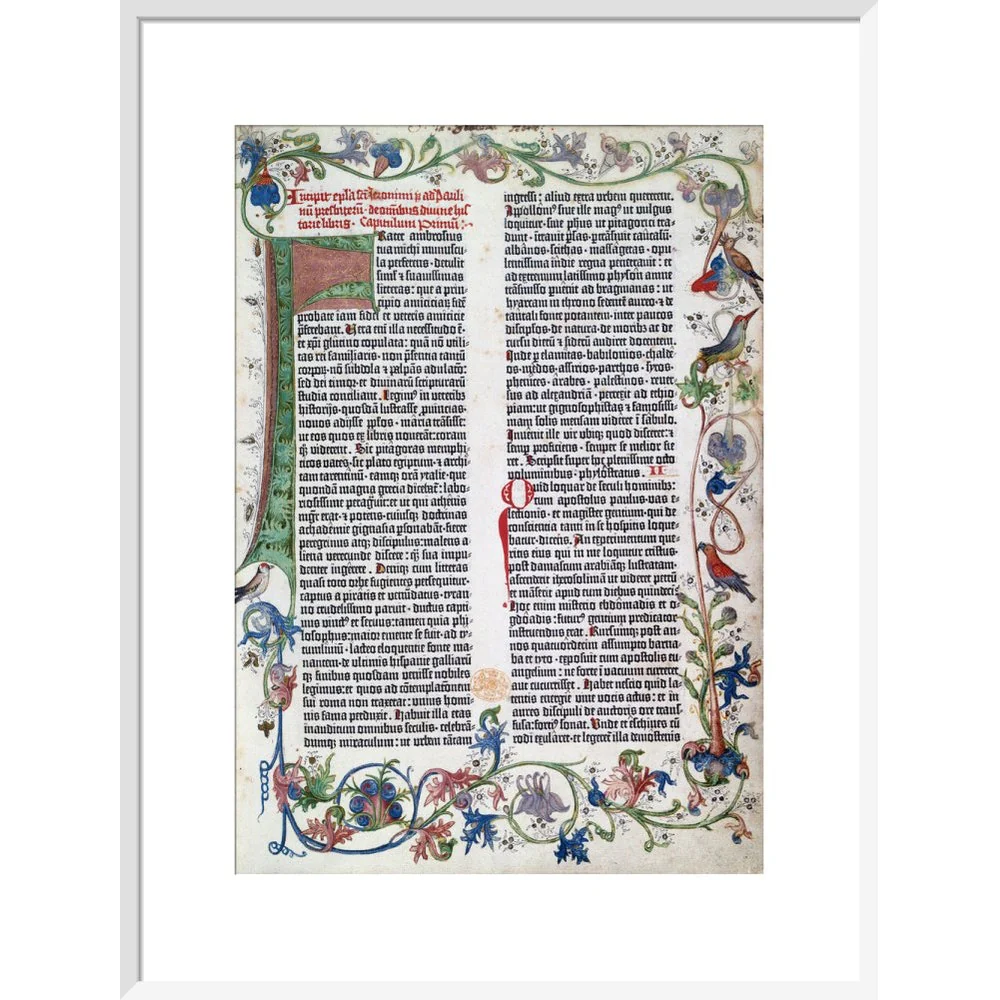 Incipit epła sc̄i Jeronimi p̄ ad Pauli
nū presbiterū · de om̄ibus diuine his
torie libris · Capitulum Primū :·
Frater ambrosius
tua michi munuscu-
la perferens · detulit
simł' ⁊ suauissimas
litteras : que a prin-
cipio amiciciaꝝ fidē
probate iam fidei et veteris amicicie
p̄ferebant. Uera eni illa necessitudo ē·
et xp̄i glutino copulata : quā nō utili-
tas rei familiaris · nō p̄sentia tantū
corpoꝝ · nō subdola ⁊ palpās adulacō:
sed dei timoꝛ · et diuinaꝝ scripturarū
studia conciliant. Legim⁹ in veteribꝫ
historijs · quosdā lustrasse ꝓuincias ·
nouos adijsse pp̄los · maria trāsisse:
ut eos quos ex libris nouerāt: coram
qꝫ viderent. Sic pitagoras memphi-
ticos vates · sic plato egiptum · et archi-
tam tarentinū · eamqꝫ orā ytalie · que
quondā magna grecia dicebat̄: labo-
riosissime peragiuit : et ut qui athenis
mgr̄ erat · ⁊ potens · cuiusqꝫ doctrinas
achademie gignasia p̄sonabāt · fieret
peregrinus atqꝫ discipulus : malens a-
liena verecunde discere: qꝫ sua impu-
denter ingerere. Deniqꝫ cum litteras
quasi toto orbe fugientes persequitur ·
captus a piratis et venūdatus · tyran-
no crudelissimo paruit · ductus capti-
nus vinct⁹ et seruus : tamen quia phi-
losophus : maior emente se fuit · ad ty-
tumliuiū · lacteo eloquentie fonte ma-
nantem · de ultimis hispanie galliarū
qꝫ finibus quosdam venisse nobiles
legimus : et quos ad cōtemplacionē
sui roma non traxerat : unius homi-
nis fama perduxit. Habuit illa etas
inauditum omnibus seculis · celebrā-
dumqꝫ miraculum : ut urbem tātam
ingressi: aliud extra urbem quererent.
Appolloni⁹ siue ille mag⁹ ut vulgus
loquitur · siue ph̄us · ut pitagorici tra-
dunt · intrauit p̄sas · ptrāsiuit caucasū ·
albanos · scithas · massagetas · opu-
lentissima indie regna penetrauit: et
ad extremum latissimo physon amne
trāsmisso puenit ad bragmanas : ut
hyarcam in throno sedentē aureo · ⁊ de
tantali fonte potantem · inter paucos
discip̄los · de natura · de moribꝫ ac de
cursu dierū ⁊ siderū audiret docentem.
Inde p elamitas · babilonios · chalde-
os · medos · assirios · parthos · syros ·
phenices · arabes · palestinos · reuer-
sus ad alexandriā · perrexit ad ethio-
piam: ut gignosophistas ⁊ famosissi-
mam solis mensam videret ī sabulo.
Inuenit ille vir ubiqꝫ quod disceret: ⁊
semp̄ proficiens · semper se melior fie-
ret. Scripsit super hoc plenissime octo
voluminibus · phylostratus. II
Quid loquar de seculi hominibꝫ:
cum apostolus paulus · vas e-
lectionis · et magister gentium · qui de
conscientia tanti in se hospitis loque-
batur · dicens. An experimentum que-
ritis eius qui in me loquitur cristus.
post damascum arabiāqꝫ lustratam ·
ascenderit iherosolimā ut videret petrū
et māserit apud eum diebus quindecī.
Hoc enim misterio ebdōmadis et o-
gdoādis: futur⁹ gentium predicator
instruendus erat. Rursumqꝫ post an-
nos quatuordecim assumpto barna-
ba et tyto · exposuit cum apostolis eu-
angelium : ne forte ī vacuum curreret
aut cucurrisset. Habet nescio quid la-
tentis energie viue vocis actus : et in
aures discipuli de auctoris ore trans-
fusa: forti⁹ sonat. Unde et eschines cū
rodi exularet · et legeret̄ illa demostenis